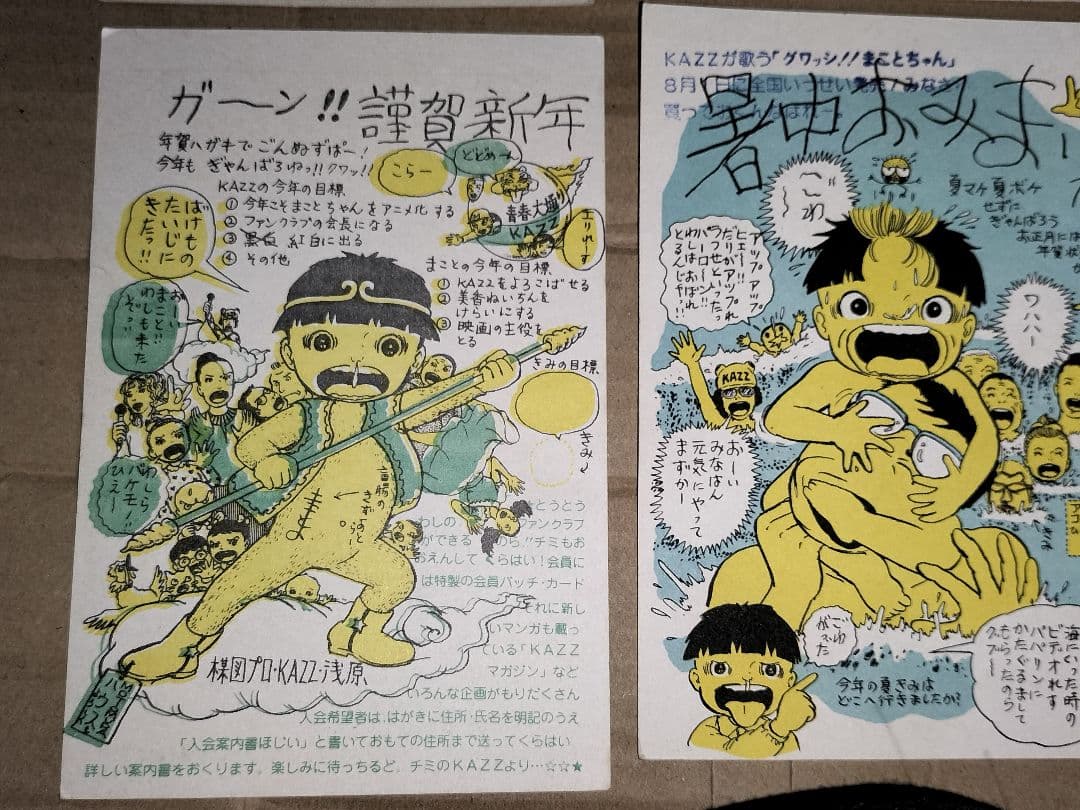 ガ〜ン!! 謹賀新年
年賀ハガキでごんぬずぱー!
今年もぎゃんばろねっ!!クワッ!!
KAZZの今年の目標
① 今年こそまことちゃんをアニメ化する
② ファンクラブの会長になる
③ 黒白 紅白に出る
④ その他
こらー
とどめー
青春大極
KAZZ
エリカーす
ばけもの
たいじに
きたっ!!
おーい
まこと!!
わしも来た
ぞっ!!
まことの今年の目標
① KAZZをよろこばせる
② 美香ねいちんを
けらいにする
③ 映画の主役を
とる
きみの目標
きみ
バケモノ!!
ひえー
盲腸の
きずのと
ら
とうとう
わしの ファンクラブ
ができる のら!!チミもお
おえんして くらはい!会員に
は特製の会員バッチ・カード
それに新し
いマンガも載っ
ている「KAZZ
マガジン」など
いろんな企画がもりだくさん
入会希望者は、はがきに住所・氏名を明記のうえ
「入会案内書ほじい」と書いておもての住所まで送ってくらはい
詳しい案内書をおくります。楽しみに待っちるど。チミのKAZZより…☆☆★
楳図プロ・KAZZ・浅原
KAZZが歌う「グワッシ!!まことちゃん」
8月 日に全国いっせい発売!みなさん
買って
暑中おみま
夏マケ夏ボケ
せずに
ぎゃんばろう
お正月には
年賀状
ごわ
アップアップ
ヒェー!!
ワハハー
KAZZ
おーい
みなはん
元気にやって
まずかー
きみ
ごわ
がった
今年の夏きみは
どこへ行きましたか?
海にいった時の
ビデオれす
パパリンに
かたぐるまして
もらったのら
グフー